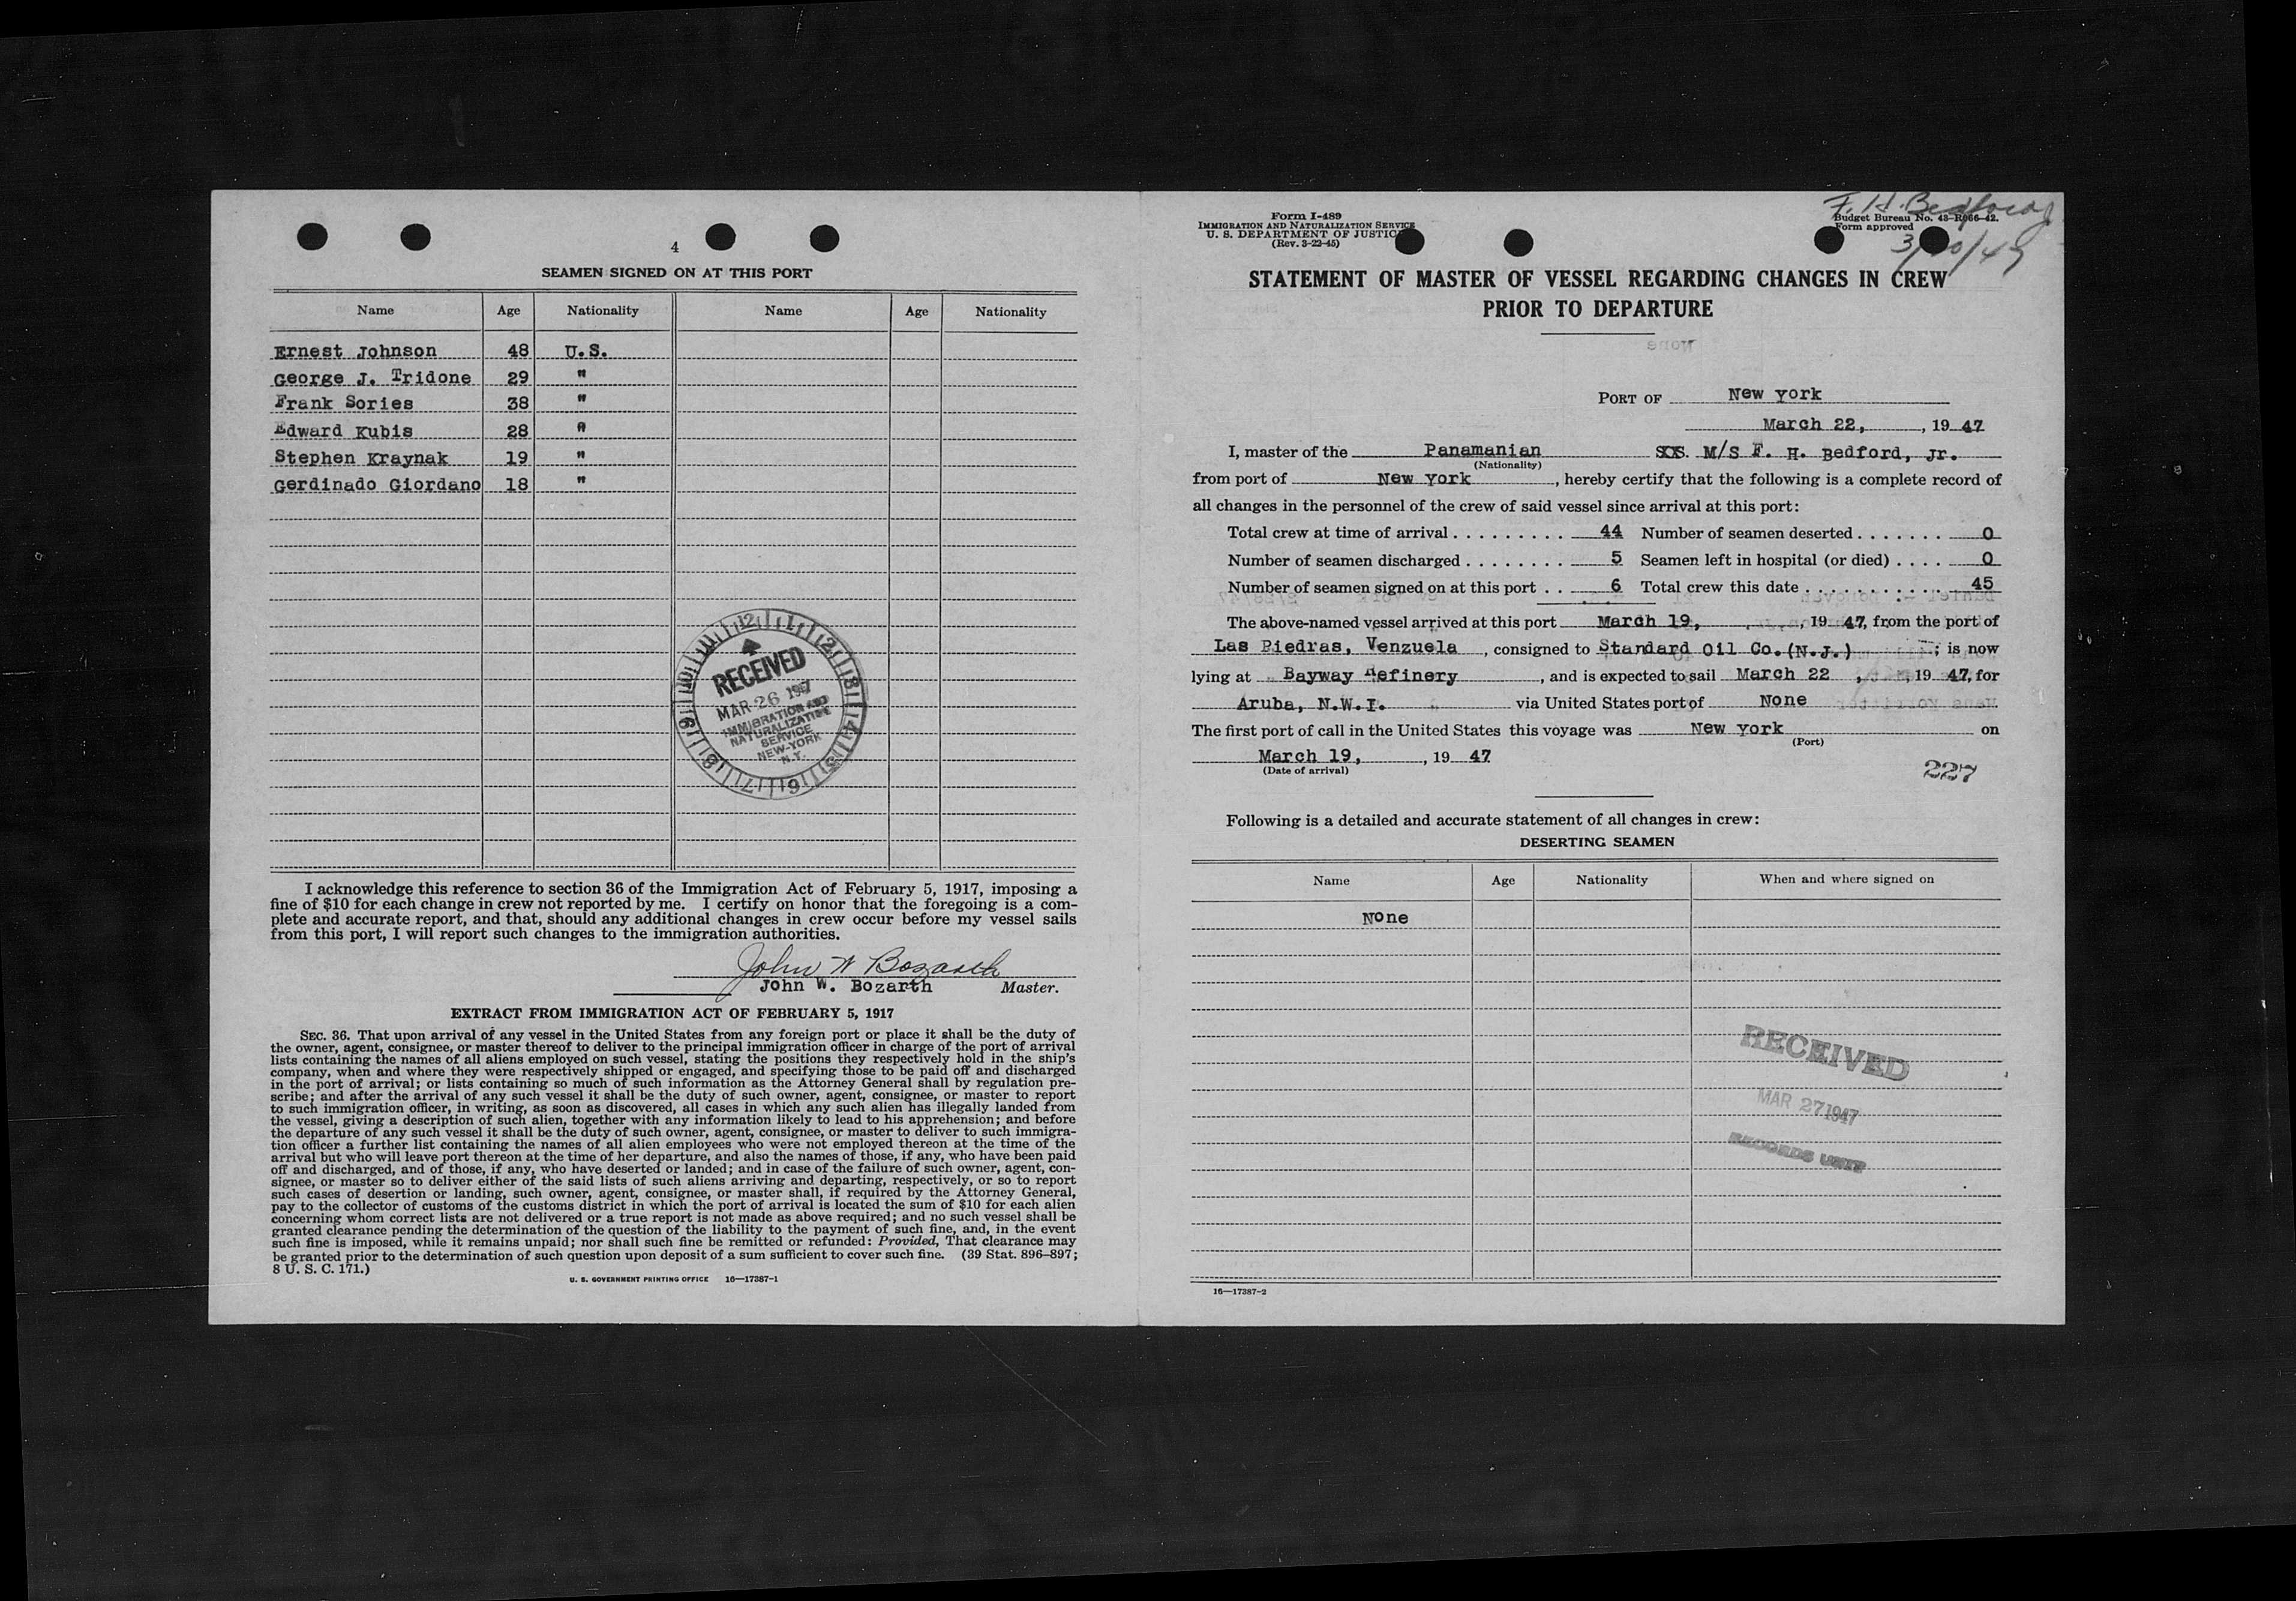 4
SEAMEN SIGNED ON AT THIS PORT
Name Age Nationality Name Age Nationality
Ernest Johnson 48 U.S.
George J. Tridone 29 "
Frank Sories 38 "
Edward Kubis 28 "
Stephen Kraynak 19 "
Gerdinado Giordano 18 "
RECEIVED
MAR 26 1947
IMMIGRATION AND
NATURALIZATION
SERVICE
NEW-YORK
N.Y.
I acknowledge this reference to section 36 of the Immigration Act of February 5, 1917, imposing a
fine of $10 for each change in crew not reported by me. I certify on honor that the foregoing is a com-
plete and accurate report, and that, should any additional changes in crew occur before my vessel sails
from this port, I will report such changes to the immigration authorities.
John W Bozarth
John W. Bozarth Master.
EXTRACT FROM IMMIGRATION ACT OF FEBRUARY 5, 1917
SEC. 36. That upon arrival of any vessel in the United States from any foreign port or place it shall be the duty of
the owner, agent, consignee, or master thereof to deliver to the principal immigration officer in charge of the port of arrival
lists containing the names of all aliens employed on such vessel, stating the positions they respectively hold in the ship's
company, when and where they were respectively shipped or engaged, and specifying those to be paid off and discharged
in the port of arrival; or lists containing so much of such information as the Attorney General shall by regulation pre-
scribe; and after the arrival of any such vessel it shall be the duty of such owner, agent, consignee, or master to report
to such immigration officer, in writing, as soon as discovered, all cases in which any such alien has illegally landed from
the vessel, giving a description of such alien, together with any information likely to lead to his apprehension; and before
the departure of any such vessel it shall be the duty of such owner, agent, consignee, or master to deliver to such immigra-
tion officer a further list containing the names of all alien employees who were not employed thereon at the time of the
arrival but who will leave port thereon at the time of her departure, and also the names of those, if any, who have been paid
off and discharged, and of those, if any, who have deserted or landed; and in case of the failure of such owner, agent, con-
signee, or master so to deliver either of the said lists of such aliens arriving and departing, respectively, or so to report
such cases of desertion or landing, such owner, agent, consignee, or master shall, if required by the Attorney General,
pay to the collector of customs of the customs district in which the port of arrival is located the sum of $10 for each alien
concerning whom correct lists are not delivered or a true report is not made as above required; and no such vessel shall be
granted clearance pending the determination of the question of the liability to the payment of such fine, and, in the event
such fine is imposed, while it remains unpaid; nor shall such fine be remitted or refunded: Provided, That clearance may
be granted prior to the determination of such question upon deposit of a sum sufficient to cover such fine. (39 Stat. 896-897;
8 U. S. C. 171.)
U. S. GOVERNMENT PRINTING OFFICE 16—17387-1
Form I-489
IMMIGRATION AND NATURALIZATION SERVICE
U. S. DEPARTMENT OF JUSTICE
(Rev. 3-22-45)
F. H. Bedford
Budget Bureau No. 43-R066-42.
Form approved
STATEMENT OF MASTER OF VESSEL REGARDING CHANGES IN CREW
PRIOR TO DEPARTURE
PORT OF New York
March 22, , 19 47
I, master of the Panamanian SS. M/S F. H. Bedford, Jr.
(Nationality)
from port of New York , hereby certify that the following is a complete record of
all changes in the personnel of the crew of said vessel since arrival at this port:
Total crew at time of arrival . . . . . . . . . 44 Number of seamen deserted . . . . . . . 0
Number of seamen discharged . . . . . . . . 5 Seamen left in hospital (or died) . . . . 0
Number of seamen signed on at this port . . 6 Total crew this date . . . . . . . . . . . 45
The above-named vessel arrived at this port March 19, , 19 47, from the port of
Las Piedras, Venzuela , consigned to Standard Oil Co.(N.J.) ; is now
lying at Bayway Refinery , and is expected to sail March 22 , , 19 47, for
Aruba, N.W.I. via United States port of None
The first port of call in the United States this voyage was New York on
(Port)
March 19, , 19 47
(Date of arrival)
227
Following is a detailed and accurate statement of all changes in crew:
DESERTING SEAMEN
Name Age Nationality When and where signed on
None
RECEIVED
MAR 27 1947
RECORDS UNIT
16—17387-2